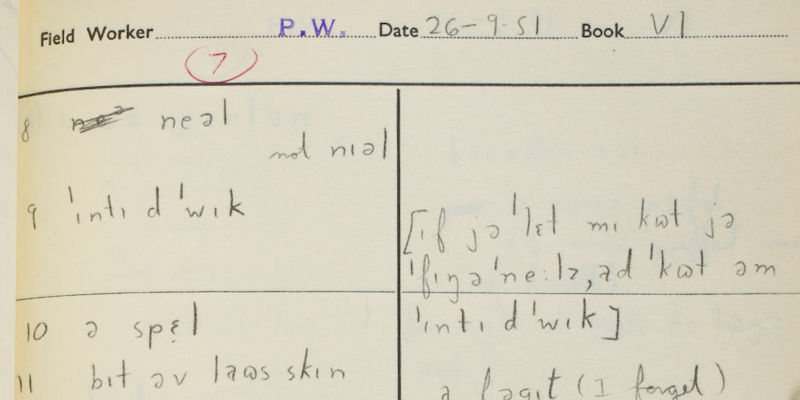 Field Worker P.W. Date 26-9-51 Book VI
7
8 neəl
not nɪəl
9 ˈɪntɪ dˈwɪk
[ɪf jə ˈlɛt mɪ kɷt jə
ˈfɪŋəˈneːlz, əd ˈkɷt əm
ˈɪntɪ dˈwɪk]
10 ə spɛl
11 bɪt əv skɪn
(I forget)